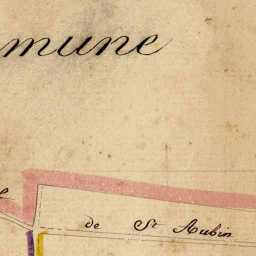 mmune
de St Aubin